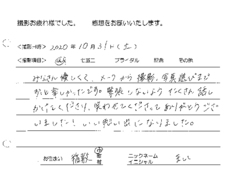 撮影お疲れ様でした。 感想をお願いいたします。
<撮影日時> 2020年10月31日(土)
<撮影項目> 七五三 ブライダル 記念 その他
みなさん優しくて、メークから撮影、写真選びまで
とても楽しかったです。緊張しないようたくさん話し
かけてくださり、笑わせてくださってありがとうござ
いました！いい思い出になりました。
お住まい ニックネーム
イニシャル